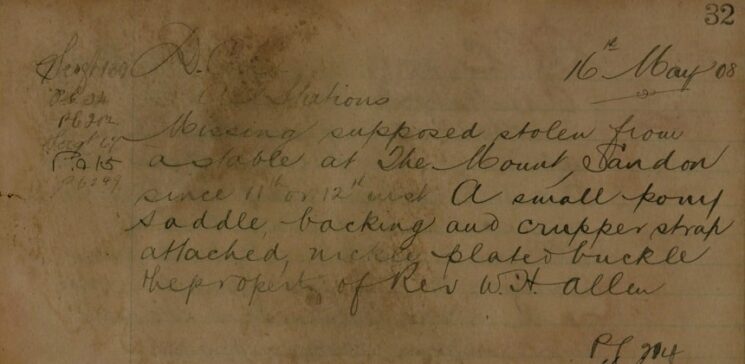 32
16th May 08
Stations
Missing supposed stolen from
a stable at The Mount, Sandon
since 11th or 12th inst A small pony
saddle, backing and crupper strap
attached, nickle plated buckle
the propert of Rev W. H. Allen